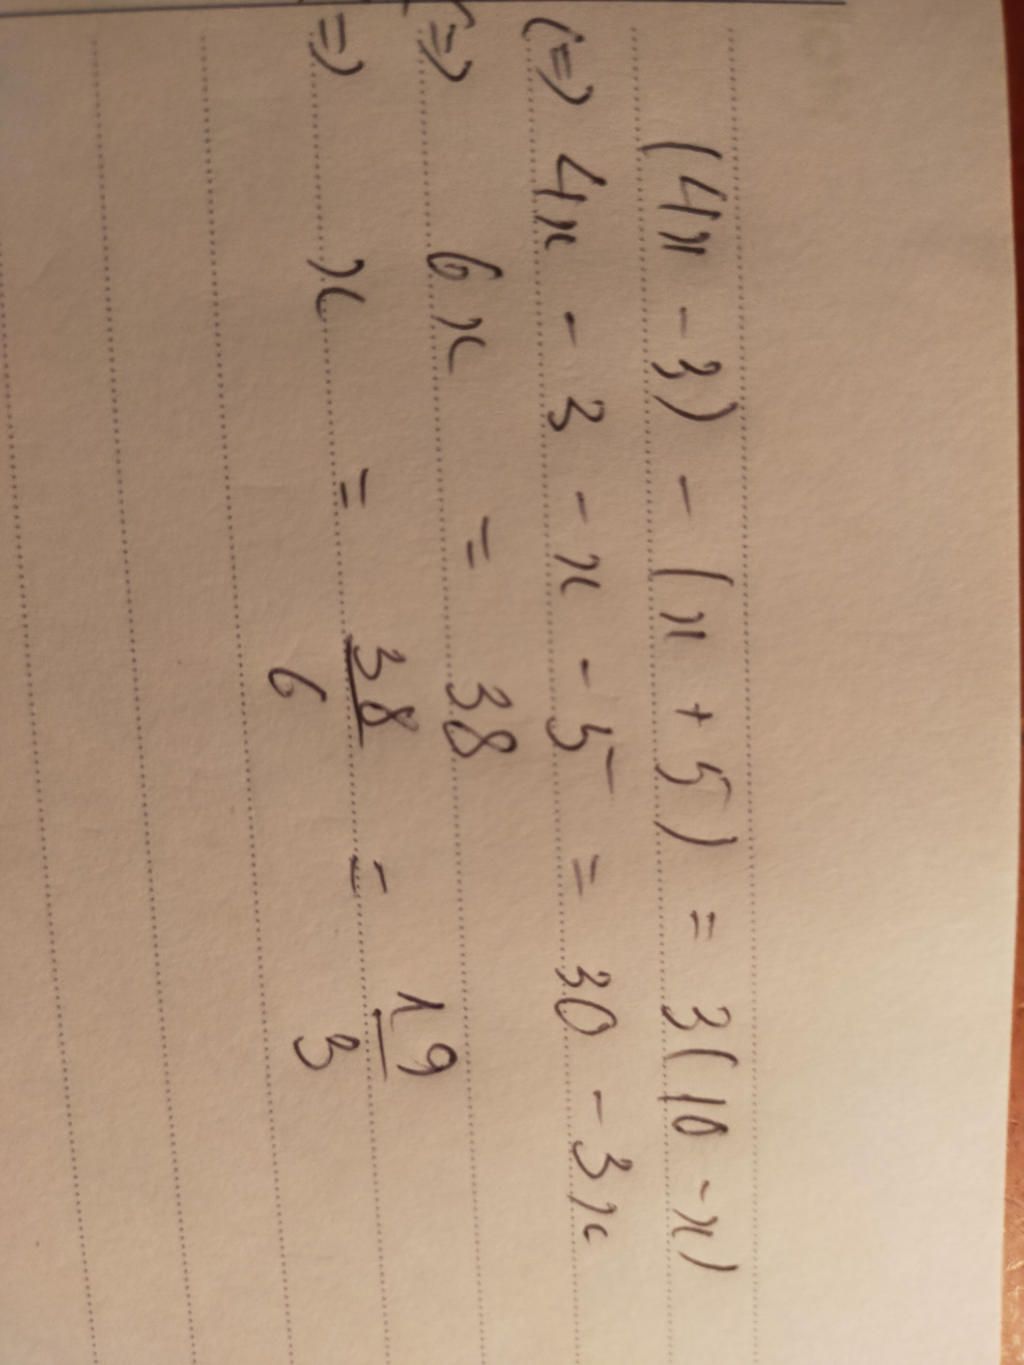 (4x - 3) - (x + 5) = 3(10 - x)
(=) 4x - 3 - x - 5 = 30 - 3x
(=) 6x = 38
=) x = 38/6 = 19/3